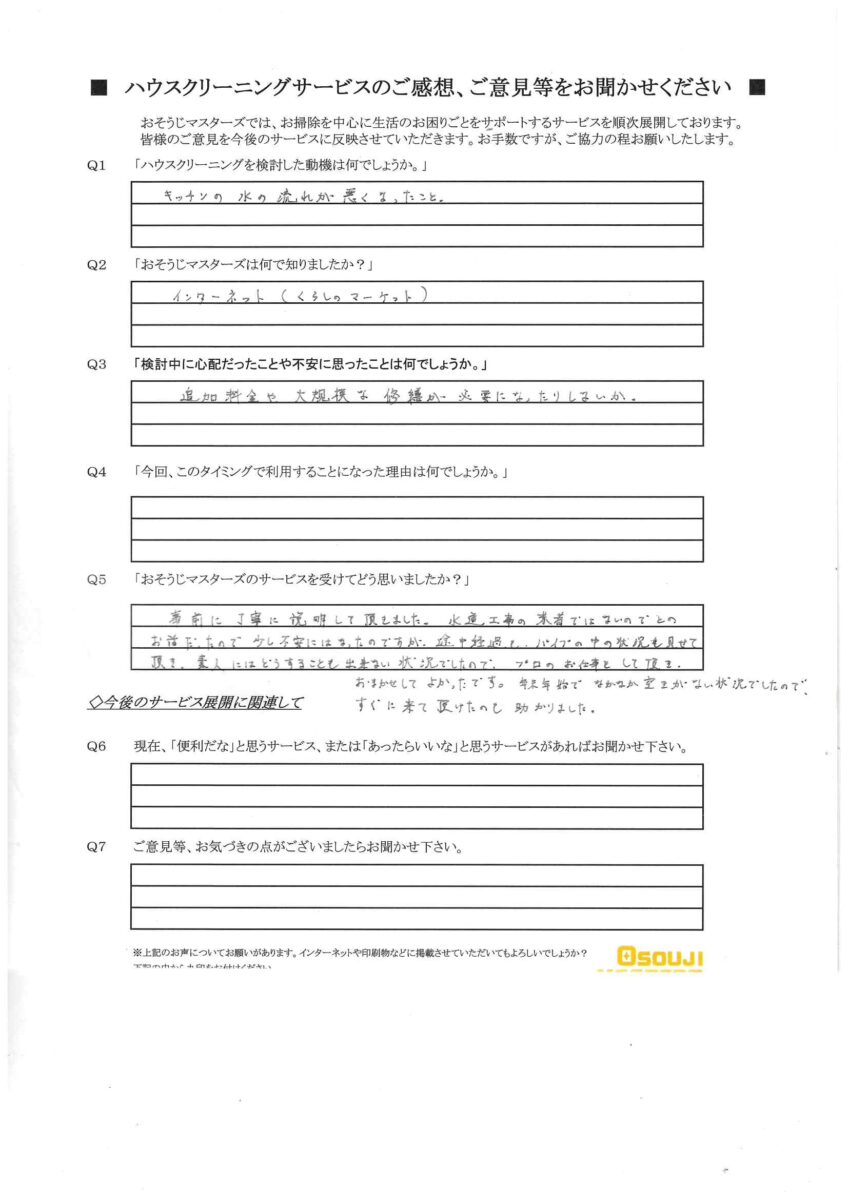 ■ ハウスクリーニングサービスのご感想、ご意見等をお聞かせください ■
おそうじマスターズでは、お掃除を中心に生活のお困りごとをサポートするサービスを順次展開しております。
皆様のご意見を今後のサービスに反映させていただきます。お手数ですが、ご協力の程お願いしたします。
Q1 「ハウスクリーニングを検討した動機は何でしょうか。」
キッチンの水の流れが悪くなったこと。
Q2 「おそうじマスターズは何で知りましたか？」
インターネット（くらしのマーケット）
Q3 「検討中に心配だったことや不安に思ったことは何でしょうか。」
追加料金や大規模な修繕が必要になったりしないか。
Q4 「今回、このタイミングで利用することになった理由は何でしょうか。」
Q5 「おそうじマスターズのサービスを受けてどう思いましたか？」
事前に丁寧に説明して頂きました。水道工事の業者ではないのでとの
お話だったので少し不安にはなったのですが、途中経過も、パイプの中の状況も見せて
頂き、素人にはどうすることも出来ない状況でしたので、プロのお仕事として頂き、
おまかせしてよかったです。年末年始でなかなか空きがない状況でしたので、
◇今後のサービス展開に関連して
すぐに来て頂けたのも助かりました。
Q6 現在、「便利だな」と思うサービス、または「あったらいいな」と思うサービスがあればお聞かせ下さい。
Q7 ご意見等、お気づきの点がございましたらお聞かせ下さい。
※上記のお声についてお願いがあります。インターネットや印刷物などに掲載させていただいてもよろしいでしょうか？
OSOUJI